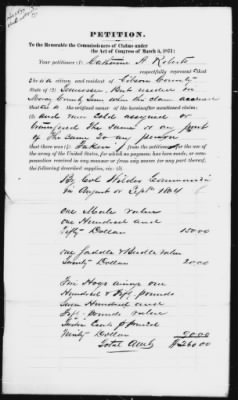 PETITION.
To the Honorable the Commissioners of Claims under
the Act of Congress of March 3, 1871:
Your petitioner Catharine A Roberts
respectfully represent that
is a citizen and resident of Gibson County
State of Tennessee. But resident in
County Tenn when the claim accrued
that the original owner of the hereinafter mentioned claim;
and never sold assigned or
transferred the same or any part
of the same to any person
that there was Taken from the petitioner for the use of the
army of the United States, for which no payment has been made, or com-
pensation received in any manner or from any source for any part thereof,
the following described supplies, to wit:
By Col Commanding
in August or Sept 1864
one Mule value
one Hundred and
Fifty Dollars 150.00
one Saddle & Bridle value
Twenty Dollars 20.00
Hogs one
Hundred & Fifty pounds
Seven Hundred and
Fifty pounds value
Twelve Cents pr pound
Ninety Dollars 90.00
Total Amt $260.00